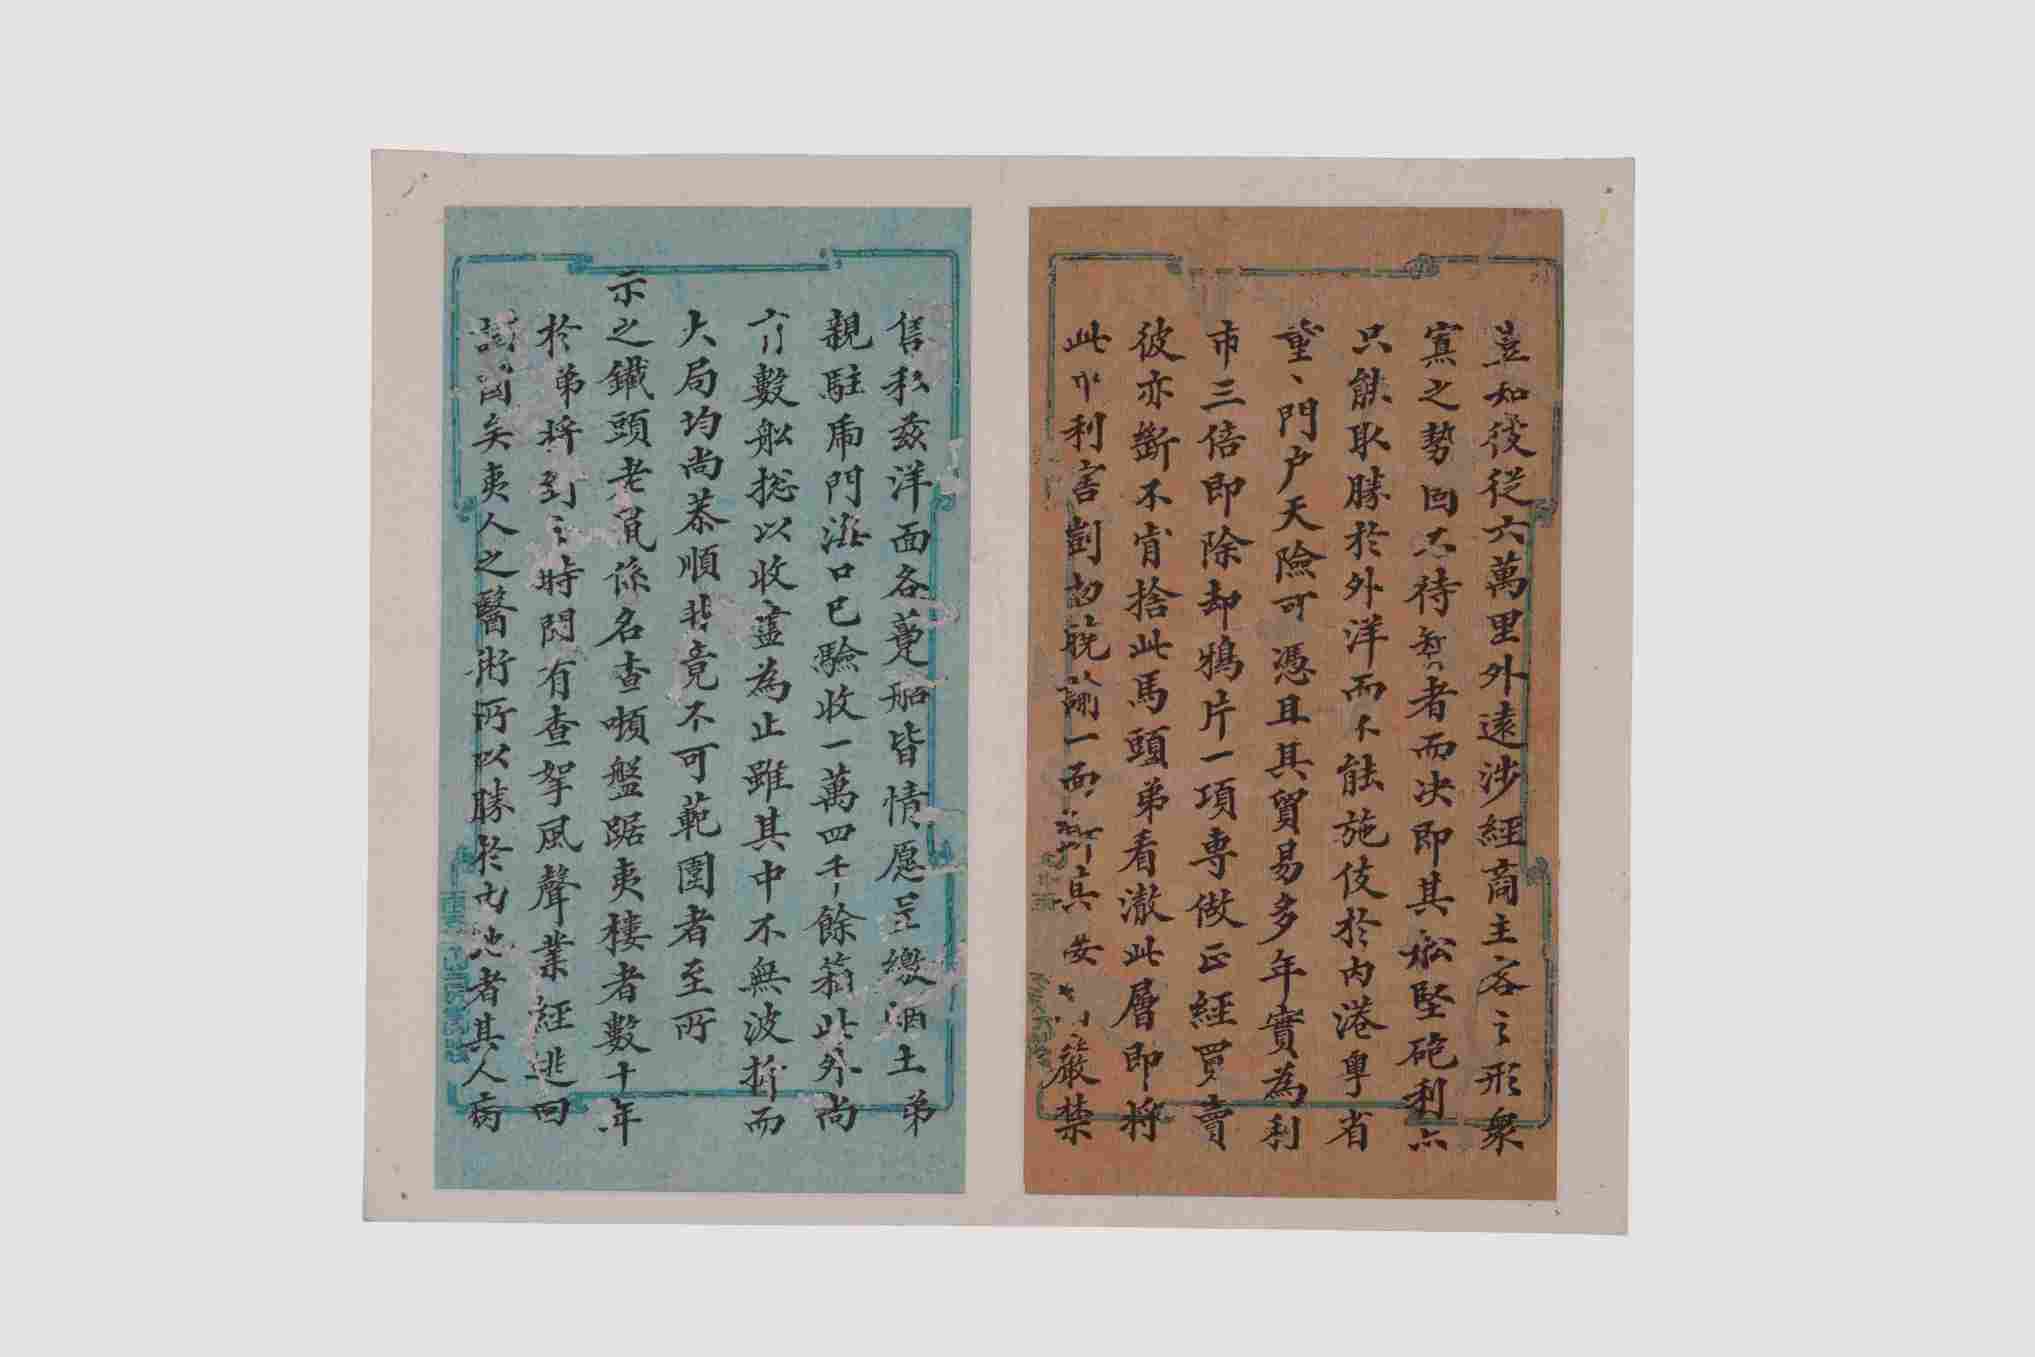 豈知彼從六萬里外遠涉經商主客之形眾
寡之勢固不待智者而决即其船堅砲利亦
只能取勝於外洋而不能施伎於内港粤省
重、門户天險可憑且其貿易多年實為利
市三倍即除却鴉片一項専做正經買賣
彼亦斷不肯捨此馬頭弟看澈此層即将
此中利害剴切 諭一面 其 嚴禁
售私兹洋面各躉船皆情愿呈繳烟土弟
親駐虎門海口已驗收一萬四千餘箱此外尚
有數船総以收盡為止雖其中不無波折而
大局均尚恭順非竟不可範圍者至所
示之鐵頭老鼠係名查噸盤踞夷樓者數十年
於弟将到之時聞有查拏風聲業經逃回
國矣夷人之醫術所以勝於内地者其人病